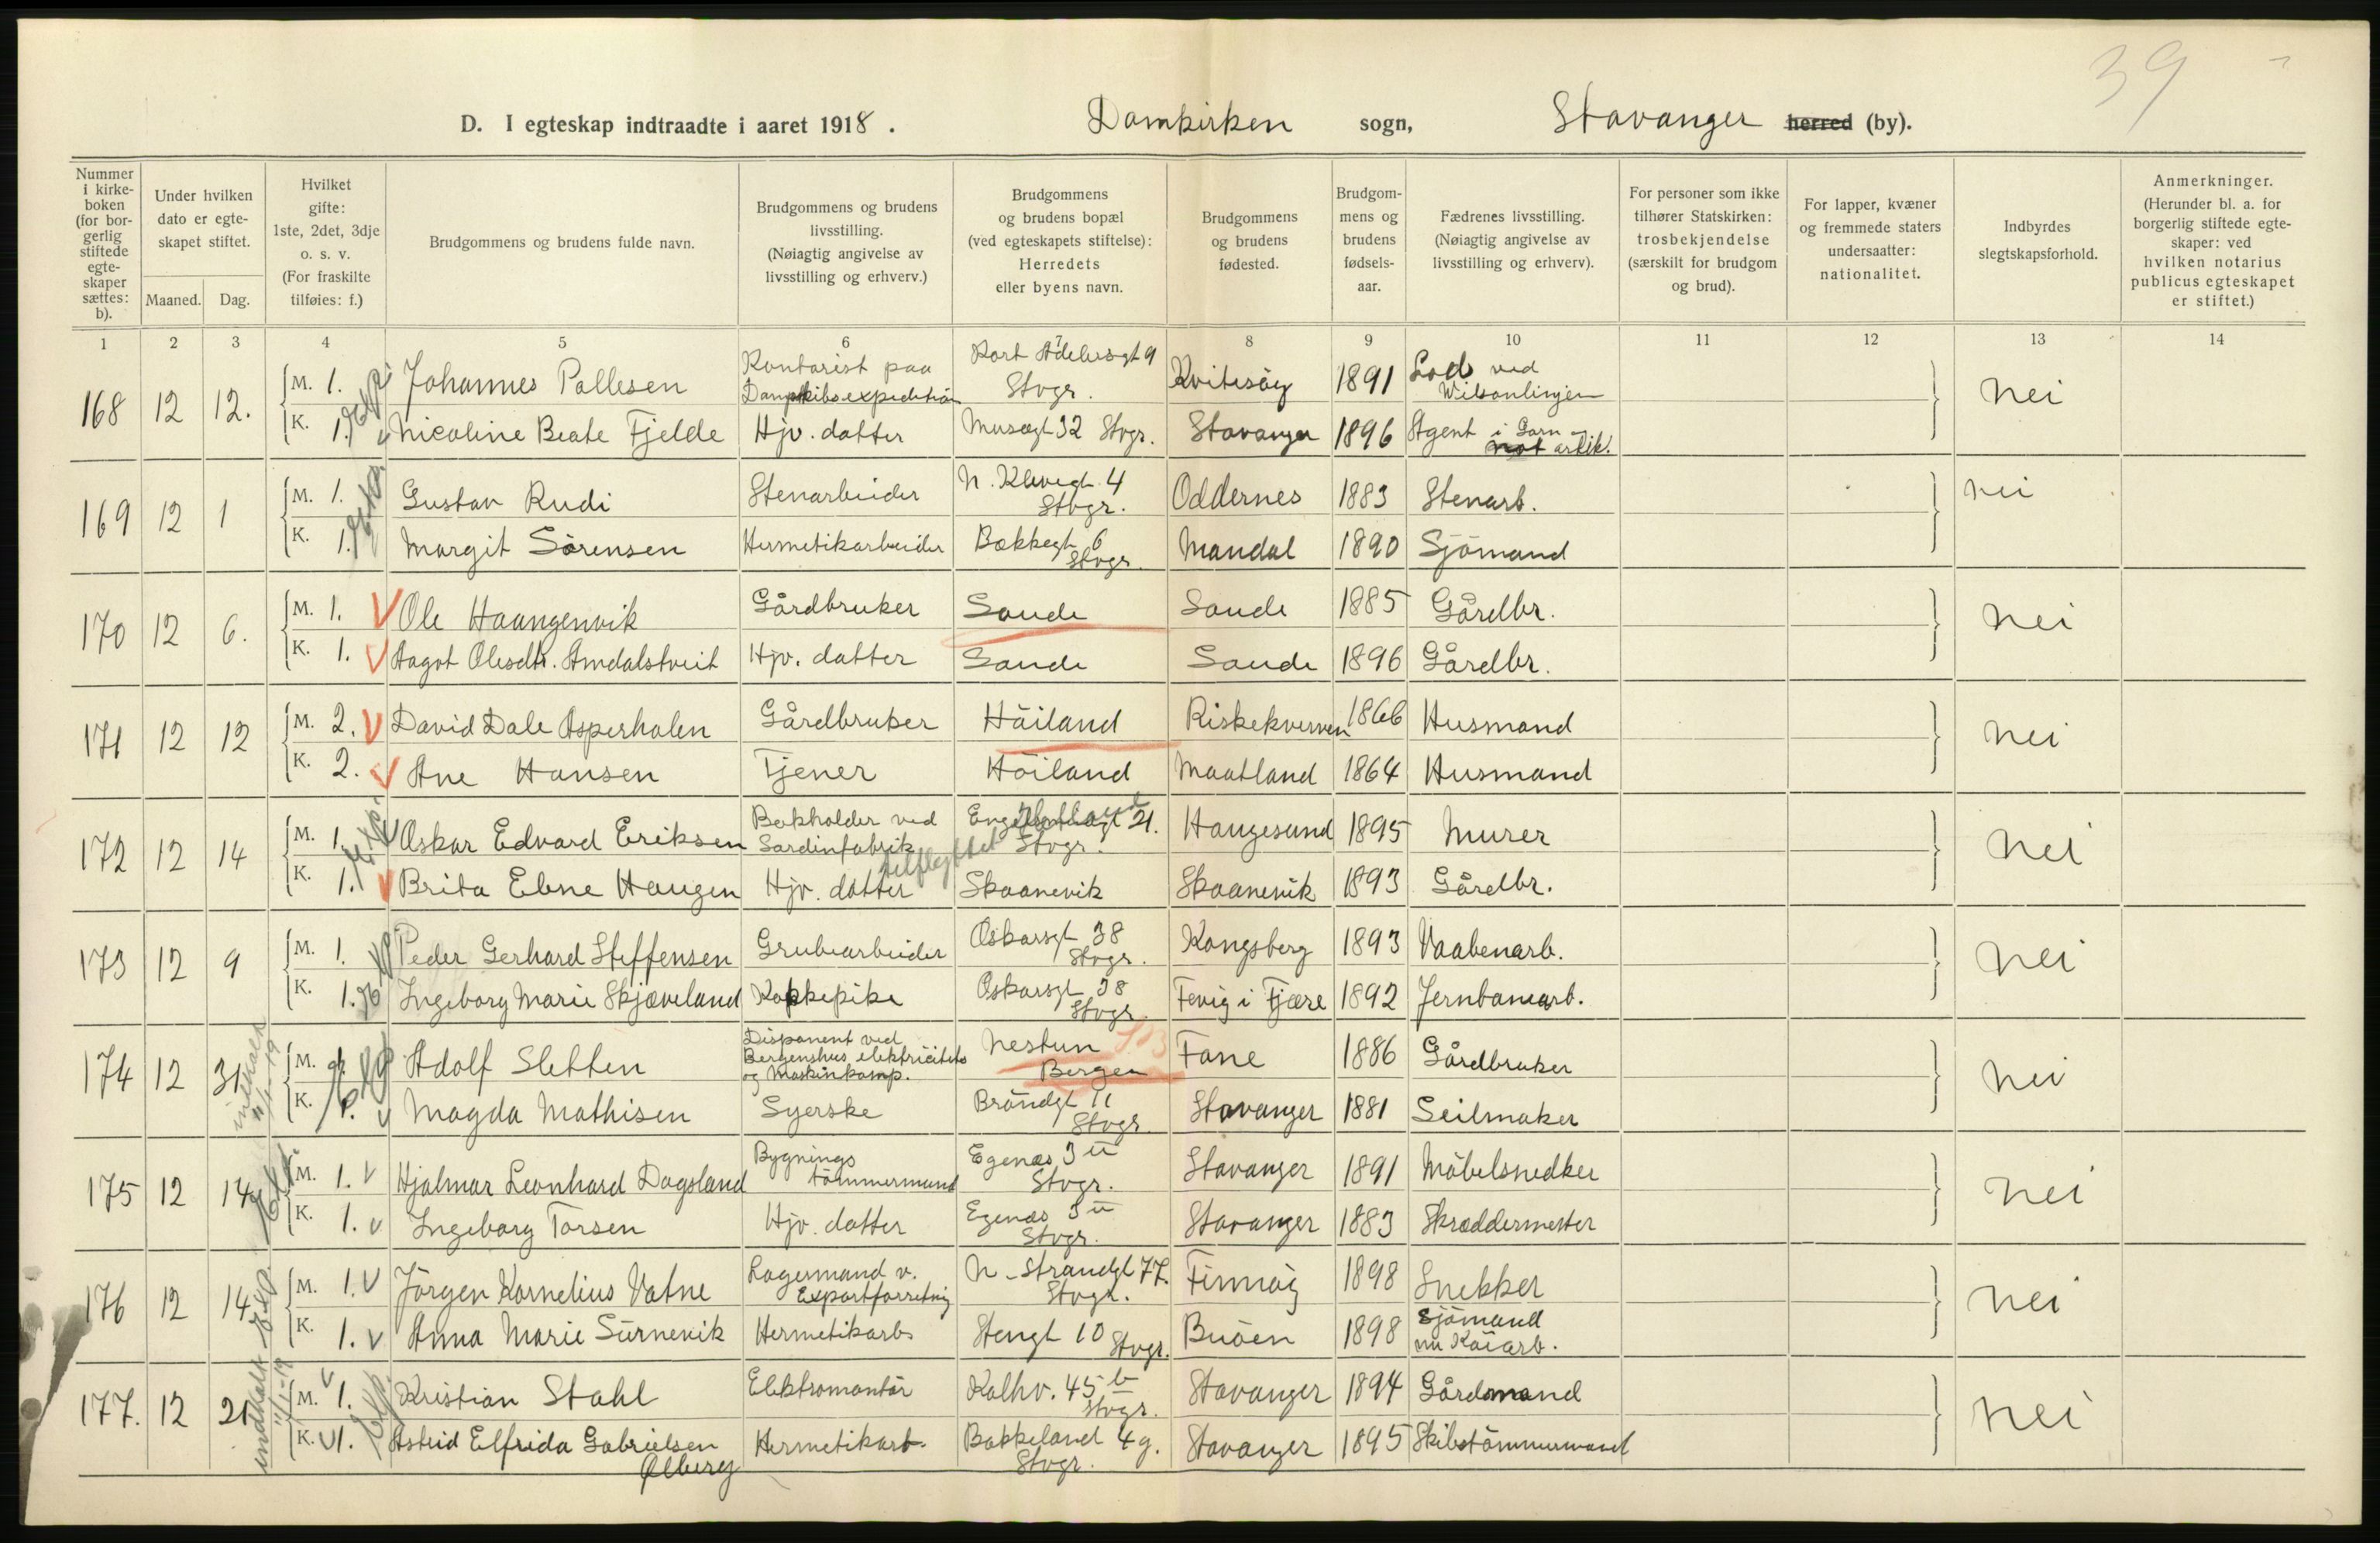 39
D. I egteskap indtraadte i aaret 1918. Domkirken sogn, Stavanger herred (by).
Nummer i kirkeboken (for borgerlig stiftede egteskaper sættes: b).
Under hvilken dato er egteskapet stiftet.
Maaned. Dag.
Hvilket gifte: 1ste, 2det, 3dje o. s. v. (For fraskilte tilføies: f.)
Brudgommens og brudens fulde navn.
Brudgommens og brudens livsstilling. (Nøiagtig angivelse av livsstilling og erhverv.)
Brudgommens og brudens bopæl (ved egteskapets stiftelse): Herredets eller byens navn.
Brudgommens og brudens fødested.
Brudgommens og brudens fødselsaar.
Fædrenes livsstilling. (Nøiagtig angivelse av livsstilling og erhverv).
For personer som ikke tilhører Statskirken: trosbekjendelse (særskilt for brudgom og brud).
For lapper, kvæner og fremmede staters undersaatter: nationalitet.
Indbyrdes slegtskapsforhold.
Anmerkninger. (Herunder bl. a. for borgerlig stiftede egteskaper: ved hvilken notarius publicus egteskapet er stiftet.)
1 2 3 4 5 6 7 8 9 10 11 12 13 14
168 12 12. M. 1. Johannes Pallesen Kontorist paa Dampskibsexpedition Kort Adelersgt 9 Stvgr. Kvitsöy 1891 Lods ved Wilsonlinjen nei
K. 1. Nicoline Beate Fjelde Hjv. datter Musegt 32 Stvgr. Stavanger 1896 Agent i Garn - not artik.
169 12 1 M. 1. Gustav Rudi Stenarbeider N. Klevegt. 4 Stvgr. Oddernes 1883 Stenarb. nei
K. 1. Margit Sörensen Hermetikarbeider Bækkegt 6 Stvgr. Mandal 1890 Sjömand
170 12 6. M. 1. V Ole Haangenvik Gårdbruker Saude Saude 1885 Gårdbr. nei
K. 1. V Aagot Olesdtr. Amdalstveit Hjv. datter Saude Saude 1896 Gårdbr.
171 12 12 M. 2. V David Dale Asperholen Gårdbruker Höiland Riskekvernen 1866 Husmand nei
K. 2. V Ane Hansen Tjener Höiland Maatland 1864 Husmand
172 12 14 M. 1. V Oskar Edvard Eriksen Bokholder ved Sardinfabrik 21. Stvgr. Haugesund 1895 Murer nei
K. 1. V Brita Elene Haugen Hjv. datter tilflyttet Skaanevik Skaanevik 1893 Gårdbr.
173 12 9 M. 1. Peder Gerhard Steffensen Grubearbeider Oskarsgt 38 Stvgr. Kongsberg 1893 Vaabenarb. nei
K. 1. Ingeborg Marie Skjæveland Kokkepike Oskarsgt 38 Stvgr. Fevig i Fjære 1892 Jernbanearb.
174 12 31 M. 1. Adolf Sletten Disponent ved Bergenshus elektricitets og Maskinkomp. Nestun Bergen Fane 1886 Gårdbruker nei
K. 1. V Magda Mathisen Syerske Bröndgt 11 Stvgr. Stavanger 1881 Seilmaker
175 12 14 M. 1. V Hjalmar Leonhard Dagsland Bygningstömmermand Egenæs 3 u Stvgr. Stavanger 1891 Möbelsnedker nei
K. 1. V Ingeborg Torsen Hjv. datter Egenæs 3 u Stvgr. Stavanger 1883 Skræddermester
176 12 14 M. 1. V Jörgen Kornelius Vatne Lagermand v. Exportforretnig N. Strandgt 77. Stvgr. Finnöy 1898 Snekker nei
K. 1. V Anna Marie Sürnevik Hermetikarb Stengt 10 Stvgr. Buöen 1898 Sjömand nu Kaiarb.
indhalt 11/1-19
177. 12 21 M. V 1. Kristian Stahl Elektromontör Kalhv. 45 b Stvgr. Stavanger 1894 Gårdmand nei
K. V 1. Astrid Elfrida Gabrielsen Ølberg Hermetikarb. Bakkeland 4 g. Stvgr. Stavanger 1895 Skibstömmermand